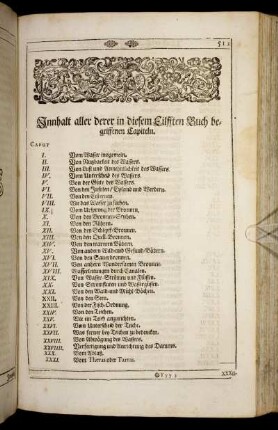 511
Innhalt aller derer in diesem Eilfften Buch be-
griffenen Capiteln.
CAPUT
I. Vom Wasser insgemein.
II. Von Nutzbarkeit des Wassers.
III. Von Lust und Annehmlichkeit des Wassers.
IV. Vom Unterscheid des Wassers.
V. Von der Güte des Wassers.
VI. Von den Inseln / Eyland und Werdern.
VII. Von den Cisternen.
VIII. Wie das Wasser zu suchen.
IX. Vom Ursprung der Brunnen.
X. Von den Brunnen-Stuben.
XI. Von den Röhren.
XII. Von den Schöpf-Brunnen.
XIII. Von den Quell-Brunnen.
XIV. Von den warmen Bädern.
XV. Von andern Wild- und Gesund-Bädern.
XVI. Von den Sauerbrunnen.
XVII. Von andern Wundersamen Brunnen.
XVIII. Wasserleitungen durch Canalen.
XIX. Von Wasser-Ströhmen und Flüssen.
XX. Von Springbrunnen und Wassergüssen.
XXI. Von den Bach- und Mühl-Bächen.
XXII. Von den Seen.
XXIII. Von der Fisch-Ordnung.
XXIV. Von den Teichen.
XXV. Wie ein Teich anzurichten.
XXVI. Vom Unterscheid der Teiche.
XXVII. Was ferner bey Teichen zu bedencken.
XXVIII. Von Abwägung des Wassers.
XXVIIII. Verfertigung und Anrichtung des Dammes.
XXX. Vom Ablaß.
XXXI. Vom
XXXII.